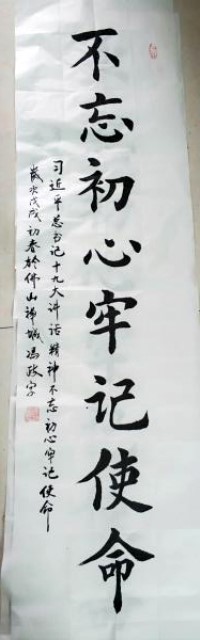 不忘初心牢记使命
习近平总书记十九大讲话精神不忘初心牢记使命
岁次戊戌初春于佛山禅城冯政字